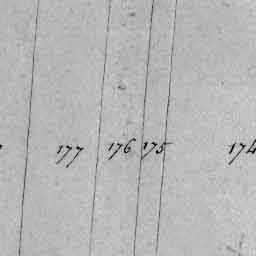 177 176 175 174